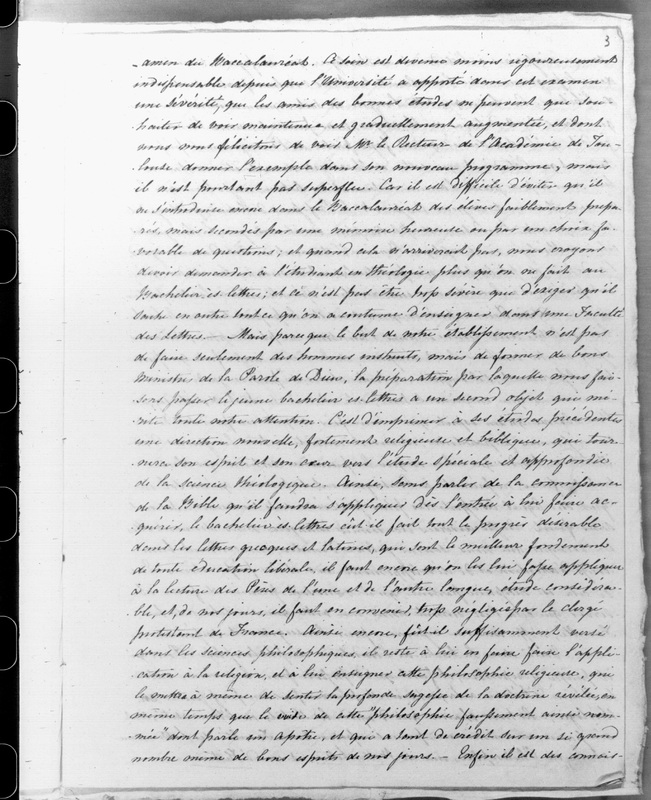 3
-amen du Baccalauréat. Ce soin est devenu moins rigoureusement
indispensable depuis que l'Université a apporté dans cet examen
une sévérité, que les amis des bonnes études ne peuvent que sou-
haiter de voir maintenue et graduellement augmentée, et dont
nous nous félicitons de voir Mr. le Recteur de l'Académie de Tou-
louse donner l'exemple dans son nouveau programme; mais
il n'est pourtant pas superflu. Car il est difficile d'éviter qu'il
ne s'introduise encore dans le Baccalauréat des élèves faiblement prépa-
rés, mais secondés par une mémoire heureuse ou par un choix fa-
vorable de questions; et quand cela n'arriverait pas, nous croyons
devoir demander à l'étudiant en théologie plus qu'on ne fait au
Bachelier ès lettres; et ce n'est pas être trop sévère que d'exiger qu'il
sache en outre tout ce qu'on a coutume d'enseigner dans une Faculté
des lettres. – Mais parceque le but de notre établissement n'est pas
de faire seulement des hommes instruits, mais de former de bons
ministres de la Parole de Dieu, la préparation par laquelle nous fai-
sons passer le jeune bachelier ès-lettres a un second objet qui mé-
rite toute notre attention. C'est d'imprimer à ses études précédentes
une direction nouvelle, fortement religieuse et biblique, qui tour-
nera son esprit et son coeur vers l'étude spéciale et approfondie
de la science théologique. Ainsi, sans parler de la connaissance
de la Bible qu'il faudra s'appliquer dès l'entrée à lui faire ac-
quérir, le bachelier ès-lettres eût-il fait tout le progrès désirable
dans les lettres grecques et latines, qui sont le meilleur fondement
de toute éducation libérale, il faut encore qu'on les lui fasse appliquer
à la lecture des Pères de l'une et de l'autre langue, étude considéra-
ble, et, de nos jours, il faut en convenir, trop négligée par le clergé
protestant de France. Ainsi encore, fût-il suffisamment versé
dans les sciences philosophiques, il reste à lui en faire faire l'appli-
cation à la religion, et à lui enseigner cette philosophie religieuse, qui
le mettra à même de sentir la profonde sagesse de la doctrine révélée, en
même temps que le vuide de cette "philosophie faussement ainsi nom-
mée" dont parle un apôtre, et qui a tant de crédit sur un si grand
nombre même de bons esprits de nos jours. – Enfin il est des connais-